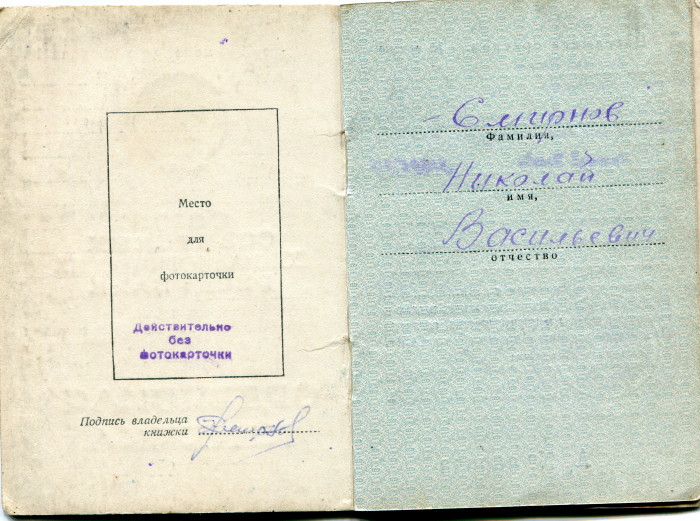 Место
для
фотокарточки
Действительно
без
фотокарточки
Подпись владельца
книжки
Смирнов
Фамилия,
Николай
имя,
Васильевич
отчество